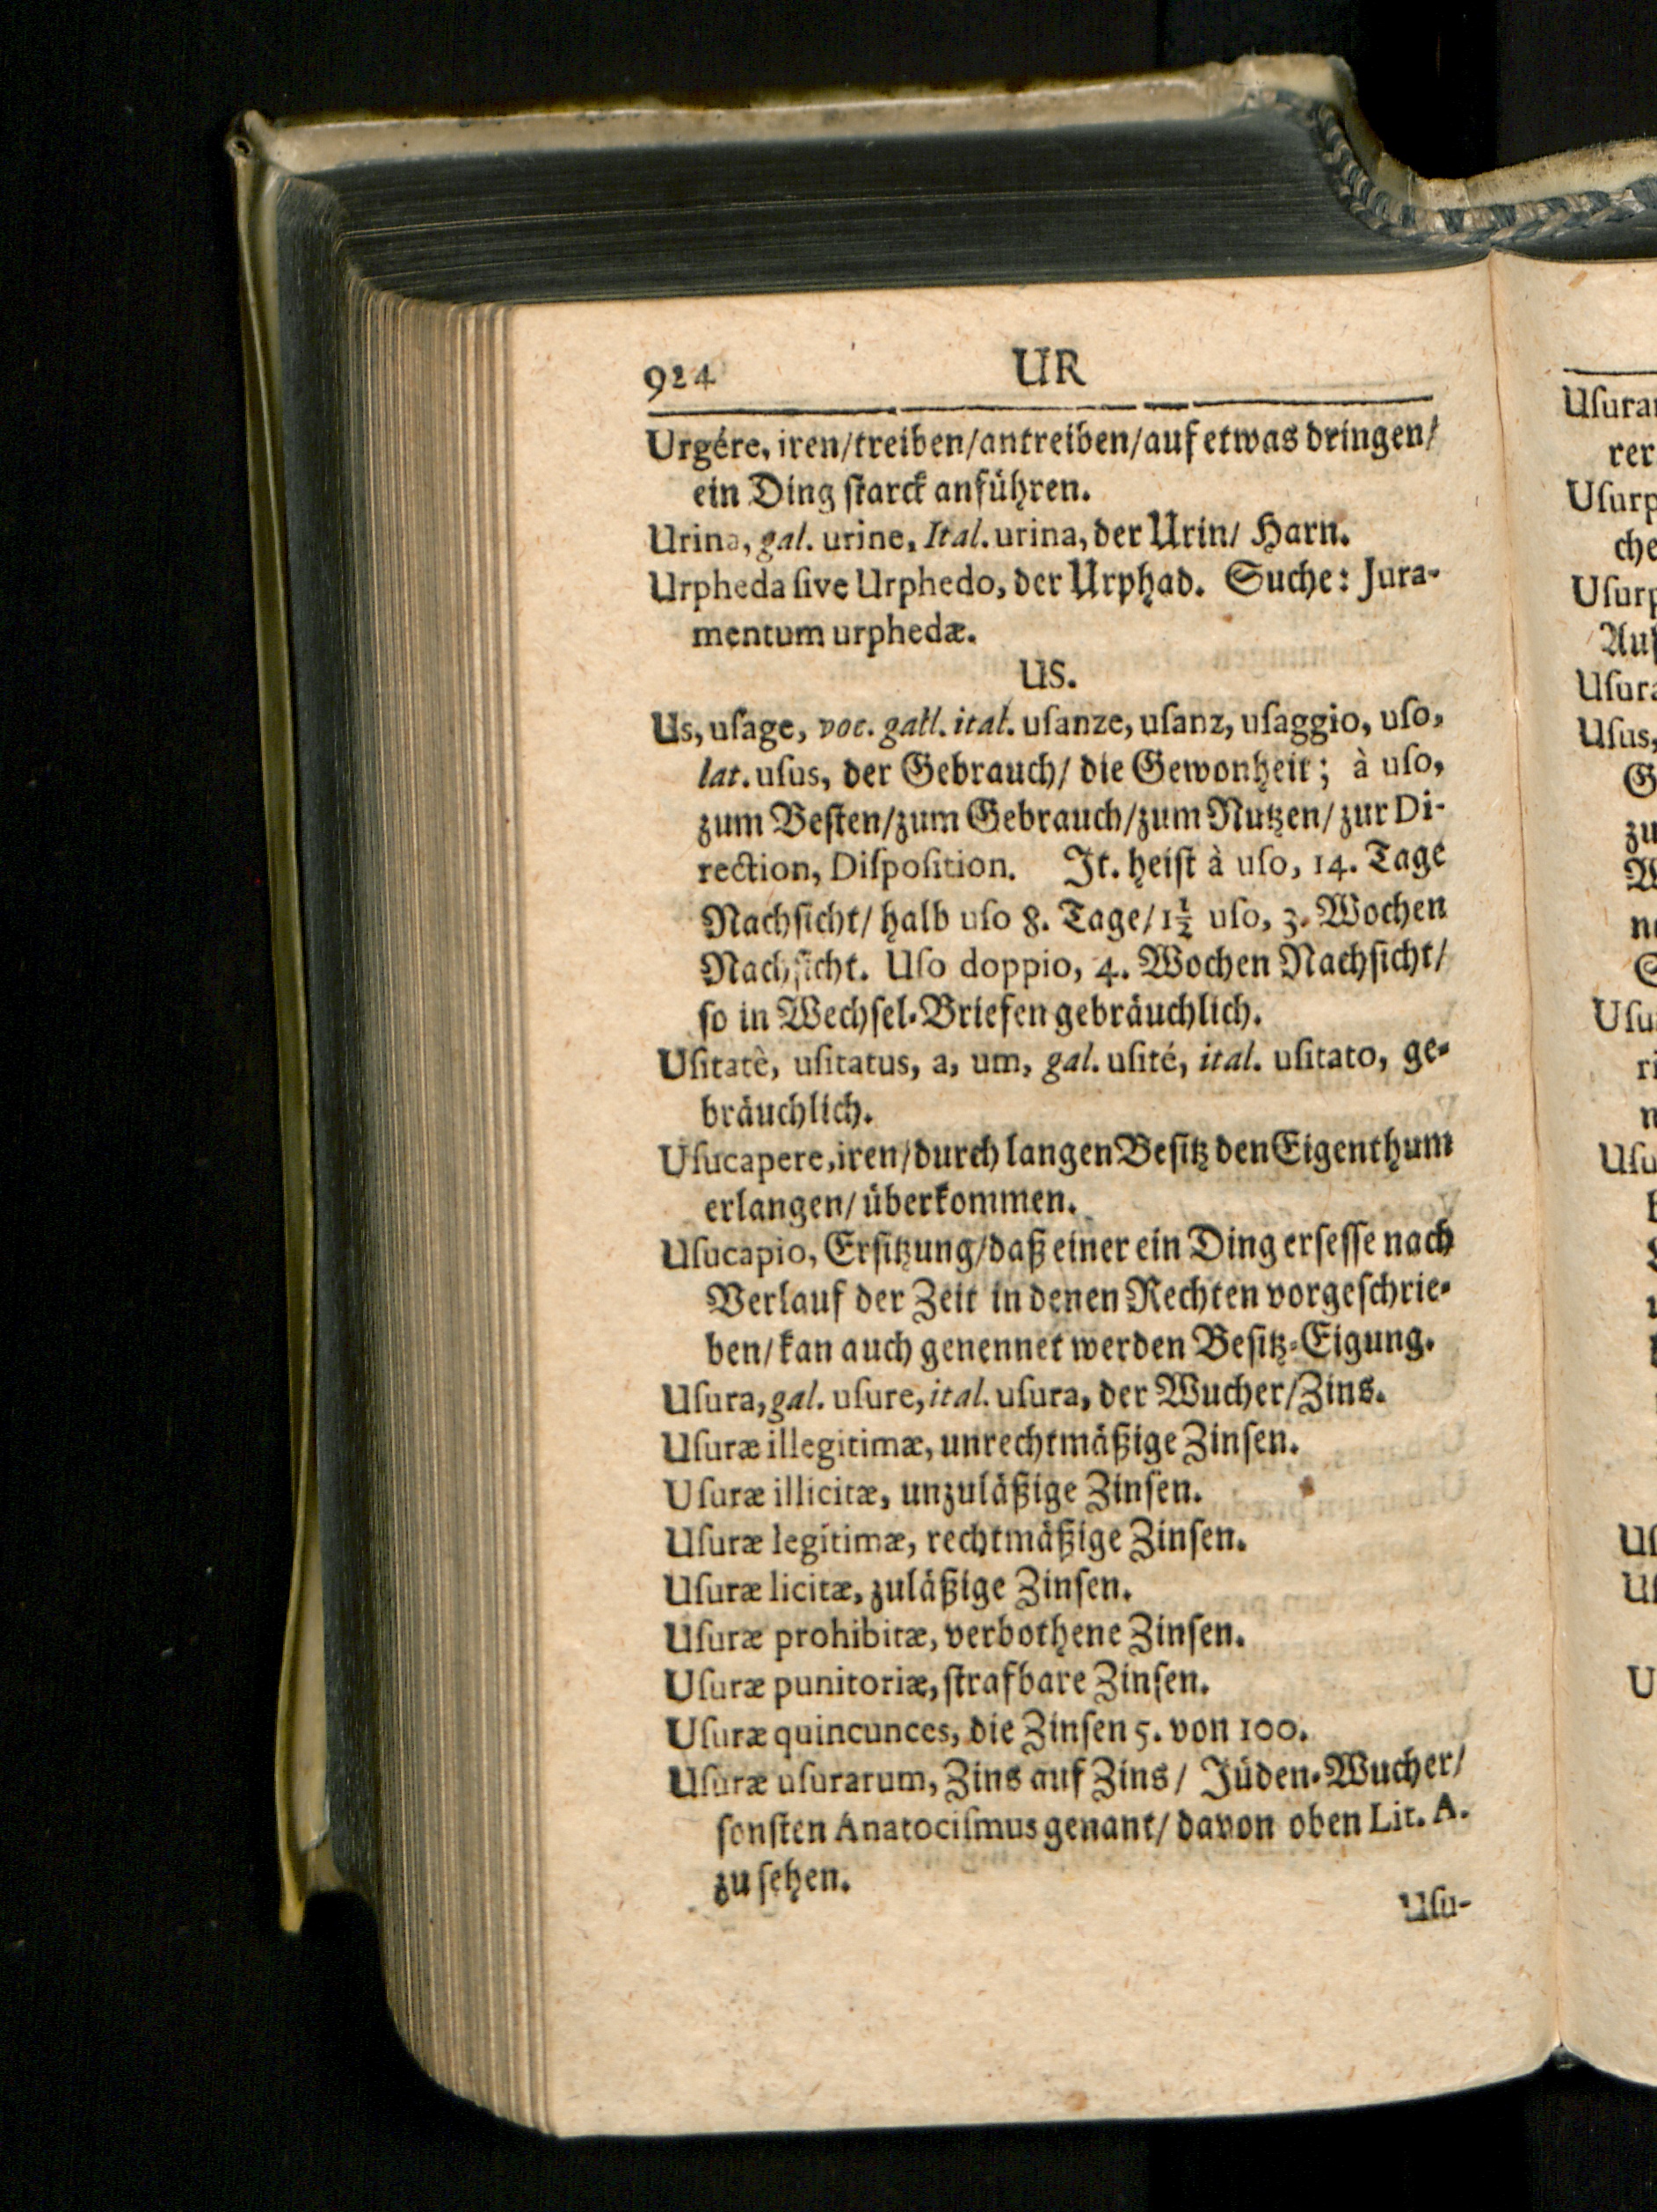 924 UR
Urgére, iren/treiben/antreiben/auf etwas dringen/
ein Ding ſtarck anführen.
Urina, gal. urine, Ital. urina, der Urin/ Harn.
Urpheda ſive Urphedo, der Urphad. Suche: Jura-
mentum urphedæ.
US.
Us, uſage, voc. gall. ital. uſanze, uſanz, uſaggio, uſo,
lat. uſus, der Gebrauch/ die Gewonheit; à uſo,
zum Beſten/zum Gebrauch/zum Nutzen/ zur Di-
rection, Diſpoſition. It. heiſt à uſo, 14. Tage
Nachſicht/ halb uſo 8. Tage/ 1½ uſo, 3. Wochen
Nachſicht. Uſo doppio, 4. Wochen Nachſicht/
ſo in Wechſel-Briefen gebräuchlich.
Uſitatè, uſitatus, a, um, gal. uſité, ital. uſitato, ge-
bräuchlich.
Uſucapere, iren/durch langen Beſitz den Eigenthum
erlangen/ überkommen.
Uſucapio, Erſitzung/daß einer ein Ding erſeſſe nach
Verlauf der Zeit in denen Rechten vorgeſchrie-
ben/ kan auch genennet werden Beſitz-Eigung.
Uſura, gal. uſure, ital. uſura, der Wucher/Zins.
Uſuræ illegitimæ, unrechtmäßige Zinſen.
Uſuræ illicitæ, unzuläßige Zinſen.
Uſuræ legitimæ, rechtmäßige Zinſen.
Uſuræ licitæ, zuläßige Zinſen.
Uſuræ prohibitæ, verbothene Zinſen.
Uſuræ punitoriæ, ſtrafbare Zinſen.
Uſuræ quincunces, die Zinſen 5. von 100.
Uſuræ uſurarum, Zins auf Zins/ Jüden-Wucher/
ſonſten Anatociſmus genant/ davon oben Lit. A.
zu ſehen.
Uſu-